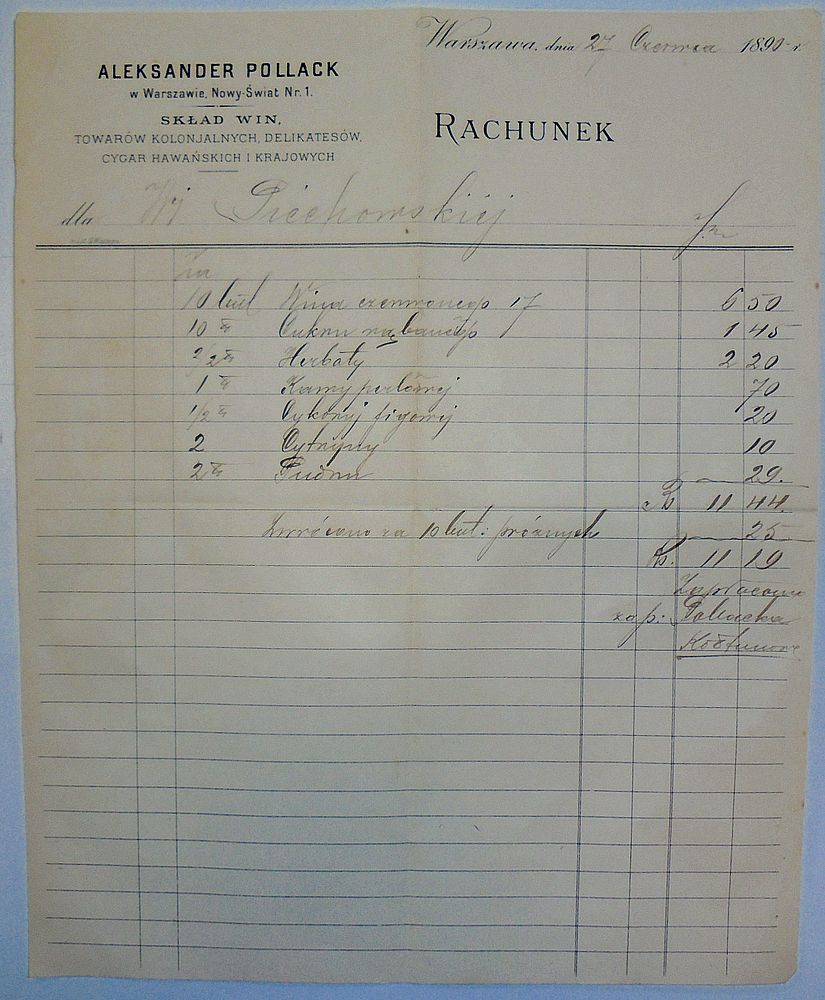 Warszawa, dnia 27 Czerwca 1890 r.
ALEKSANDER POLLACK
w Warszawie, Nowy-Świat Nr. 1.
SKŁAD WIN,
TOWARÓW KOLONJALNYCH, DELIKATESÓW,
CYGAR HAWAŃSKICH I KRAJOWYCH
RACHUNEK
dla Wj Piechowskiéj
10 but Wina czerwonego 17 6 50
10 ℔ Cukru rąbanego 1 45
Herbaty 2 20
1 ℔ Kawy perłowej 70
1/2 ℔ Cykoryj figowej 20
2 Cytryny 10
2 ℔ 29.
Rs 11 44.
Zwrócono za 10 but: próżnych 25
Rs. 11 19
Zapłacono
za p: Pollacka